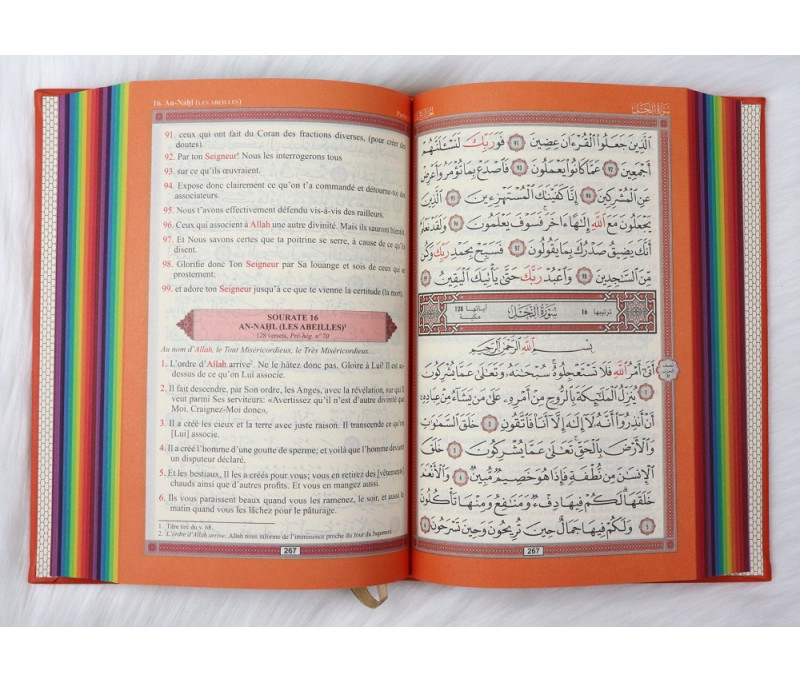 16. An-Naḥl (LES ABEILLES)
91. ceux qui ont fait du Coran des fractions diverses, (pour créer des
doutes).
92. Par ton Seigneur! Nous les interrogerons tous
93. sur ce qu'ils œuvraient.
94. Expose donc clairement ce qu'on t'a commandé et détourne-toi des
associateurs.
95. Nous t'avons effectivement défendu vis-à-vis des railleurs.
96. Ceux qui associent à Allah une autre divinité. Mais ils sauront bientôt.
97. Et Nous savons certes que ta poitrine se serre, à cause de ce qu'ils
disent.
98. Glorifie donc Ton Seigneur par Sa louange et sois de ceux qui se
prosternent;
99. et adore ton Seigneur jusqu'à ce que te vienne la certitude (la mort).
SOURATE 16
AN-NAḤL (LES ABEILLES)¹
128 versets, Pré-hég. n° 70
Au nom d'Allah, le Tout Miséricordieux, le Très Miséricordieux.
1. L'ordre d'Allah arrive². Ne le hâtez donc pas. Gloire à Lui! Il est au-
dessus de ce qu'on Lui associe.
2. Il fait descendre, par Son ordre, les Anges, avec la révélation, sur qui Il
veut parmi Ses serviteurs: «Avertissez qu'il n'est d'autre divinité que
Moi. Craignez-Moi donc».
3. Il a créé les cieux et la terre avec juste raison. Il transcende ce qu'on
[Lui] associe.
4. Il a créé l'homme d'une goutte de sperme; et voilà que l'homme devient
un disputeur déclaré.
5. Et les bestiaux, Il les a créés pour vous; vous en retirez des [vêtements]
chauds ainsi que d'autres profits. Et vous en mangez aussi.
6. Ils vous paraissent beaux quand vous les ramenez, le soir, et aussi le
matin quand vous les lâchez pour le pâturage.
1. Titre tiré du v. 68.
2. L'ordre d'Allah arrive: Allah nous informe de l'imminence proche du jour du Jugement.
267
سُورَةُ النَّحْلِ
الَّذِينَ جَعَلُوا الْقُرْءَانَ عِضِينَ ٩١ فَوَرَبِّكَ لَنَسْـَٔلَنَّهُمْ
أَجْمَعِينَ ٩٢ عَمَّا كَانُوا يَعْمَلُونَ ٩٣ فَاصْدَعْ بِمَا تُؤْمَرُ وَأَعْرِضْ
عَنِ الْمُشْرِكِينَ ٩٤ إِنَّا كَفَيْنَاكَ الْمُسْتَهْزِءِينَ ٩٥ الَّذِينَ
يَجْعَلُونَ مَعَ اللَّهِ إِلَٰهًا ءَاخَرَ فَسَوْفَ يَعْلَمُونَ ٩٦ وَلَقَدْ نَعْلَمُ
أَنَّكَ يَضِيقُ صَدْرُكَ بِمَا يَقُولُونَ ٩٧ فَسَبِّحْ بِحَمْدِ رَبِّكَ وَكُن
مِّنَ السَّاجِدِينَ ٩٨ وَاعْبُدْ رَبَّكَ حَتَّىٰ يَأْتِيَكَ الْيَقِينُ ٩٩
ترتيبها 16 سُورَةُ النَّحْلِ آياتها 128 مكية
بِسْمِ اللَّهِ الرَّحْمَٰنِ الرَّحِيمِ
أَتَىٰ أَمْرُ اللَّهِ فَلَا تَسْتَعْجِلُوهُ سُبْحَانَهُ وَتَعَالَىٰ عَمَّا يُشْرِكُونَ
١ يُنَزِّلُ الْمَلَائِكَةَ بِالرُّوحِ مِنْ أَمْرِهِ عَلَىٰ مَن يَشَاءُ مِنْ عِبَادِهِ
أَنْ أَنذِرُوا أَنَّهُ لَا إِلَٰهَ إِلَّا أَنَا فَاتَّقُونِ ٢ خَلَقَ السَّمَاوَاتِ
وَالْأَرْضَ بِالْحَقِّ تَعَالَىٰ عَمَّا يُشْرِكُونَ ٣ خَلَقَ
الْإِنسَانَ مِن نُّطْفَةٍ فَإِذَا هُوَ خَصِيمٌ مُّبِينٌ ٤ وَالْأَنْعَامَ
خَلَقَهَا لَكُمْ فِيهَا دِفْءٌ وَمَنَافِعُ وَمِنْهَا تَأْكُلُونَ
٥ وَلَكُمْ فِيهَا جَمَالٌ حِينَ تُرِيحُونَ وَحِينَ تَسْرَحُونَ ٦
267